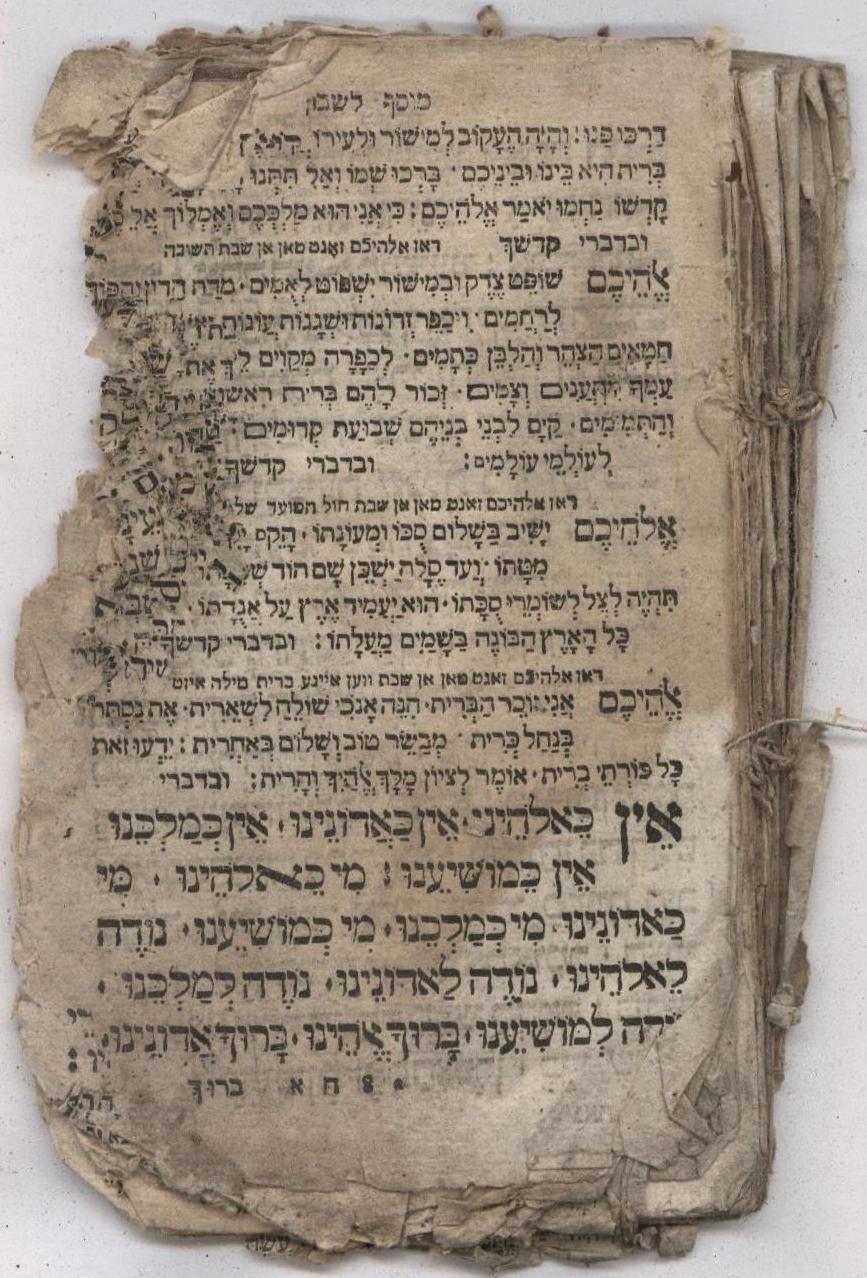 מוסף לשבת
דַרְכּוֹ פַּנּוּ: וְהָיָה הֶעָקוֹב לְמִישׁוֹר וּלְעִירוֹ
בְּרִית הִיא בֵּינוֹ וּבֵינֵיכֶם · בָּרְכוּ שְׁמוֹ וְאַל תִּתְּנוּ
קָדְשׁוֹ נַחְמוּ יֹאמַר אֱלֹהֵיכֶם: כִּי אֲנִי הוּא מַלְכְּכֶם וְאֶמְלוֹךְ
ובדברי קדשך דאז אלהיכם זאגט מאן אן שבת תשובה
אֱלֹהֵיכֶם שׁוֹפֵט צֶדֶק וּבְמִישׁוֹר יִשְׁפּוֹט לְאֻמִּים · מִדַּת הַדִּין יַהֲפוֹךְ
לְרַחֲמִים · וִיכַפֵּר זְדוֹנוֹת וּשְׁגָגוֹת עֲוֹנוֹת
חַטָּאִים הַצְהֵר וְהַלְבֵּן כְּתָמִים · לְכַפָּרָה מְקַוִּים לְךָ אֶת
עַמְּךָ הַמִּתְעַנִּים וְצָמִים · זְכוֹר לָהֶם בְּרִית
וְהַתְּמִימִים · קַיֵּם לִבְנֵי בְנֵיהֶם שְׁבוּעַת קְדוּמִים :
לְעוֹלְמֵי עוֹלָמִים : ובדברי קדשך
דאז אלהיכם זאגט מאן אן שבת חול המועד של
אֱלֹהֵיכֶם יָשִׁיב בְּשָׁלוֹם סֻכּוֹ וּמְעוֹנָתוֹ ·
מִטָּתוֹ · וְעַד סֻלָּת יִשְׁכֵּן שָׁם הוֹד
תִּהְיֶה לְצֵל לְשׁוֹמְרֵי סֻכָּתוֹ · הוּא יַעֲמִיד אֶרֶץ עַל אֲגֻדָּתוֹ ·
כָּל הָאָרֶץ הַבּוֹנֶה בַּשָּׁמַיִם מַעֲלָתוֹ : ובדברי קדשך
דאז אלהיכם זאגט מאן אן שבת ווען איינע ברית מילה איזט
אֱלֹהֵיכֶם אֲנִי זוֹכֵר הַבְּרִית · הִנֵּה אָנֹכִי שׁוֹלֵחַ לִשְׁאֵרִית · אֶת נִסְתַּר
בְּנַחַל כְּרִית · מְבַשֵּׂר טוֹב וְשָׁלוֹם בְּאַחֲרִית : יֵדְעוּ זֹאת
כָּל כּוֹרְתֵי בְרִית · אוֹמֵר לְצִיּוֹן מָלַךְ אֱלֹהַיִךְ וְהָרִית : ובדברי
אֵין כֵּאלֹהֵינוּ · אֵין כַּאֲדוֹנֵינוּ · אֵין כְּמַלְכֵּנוּ
אֵין כְּמוֹשִׁיעֵנוּ : מִי כֵאלֹהֵינוּ · מִי
כַאדוֹנֵינוּ · מִי כְמַלְכֵּנוּ · מִי כְּמוֹשִׁיעֵנוּ · נוֹדֶה
לֵאלֹהֵינוּ · נוֹדֶה לַאדוֹנֵינוּ · נוֹדֶה לְמַלְכֵּנוּ ·
לְמוֹשִׁיעֵנוּ · בָּרוּךְ אֱלֹהֵינוּ · בָּרוּךְ אֲדוֹנֵינוּ
ח א ברוך